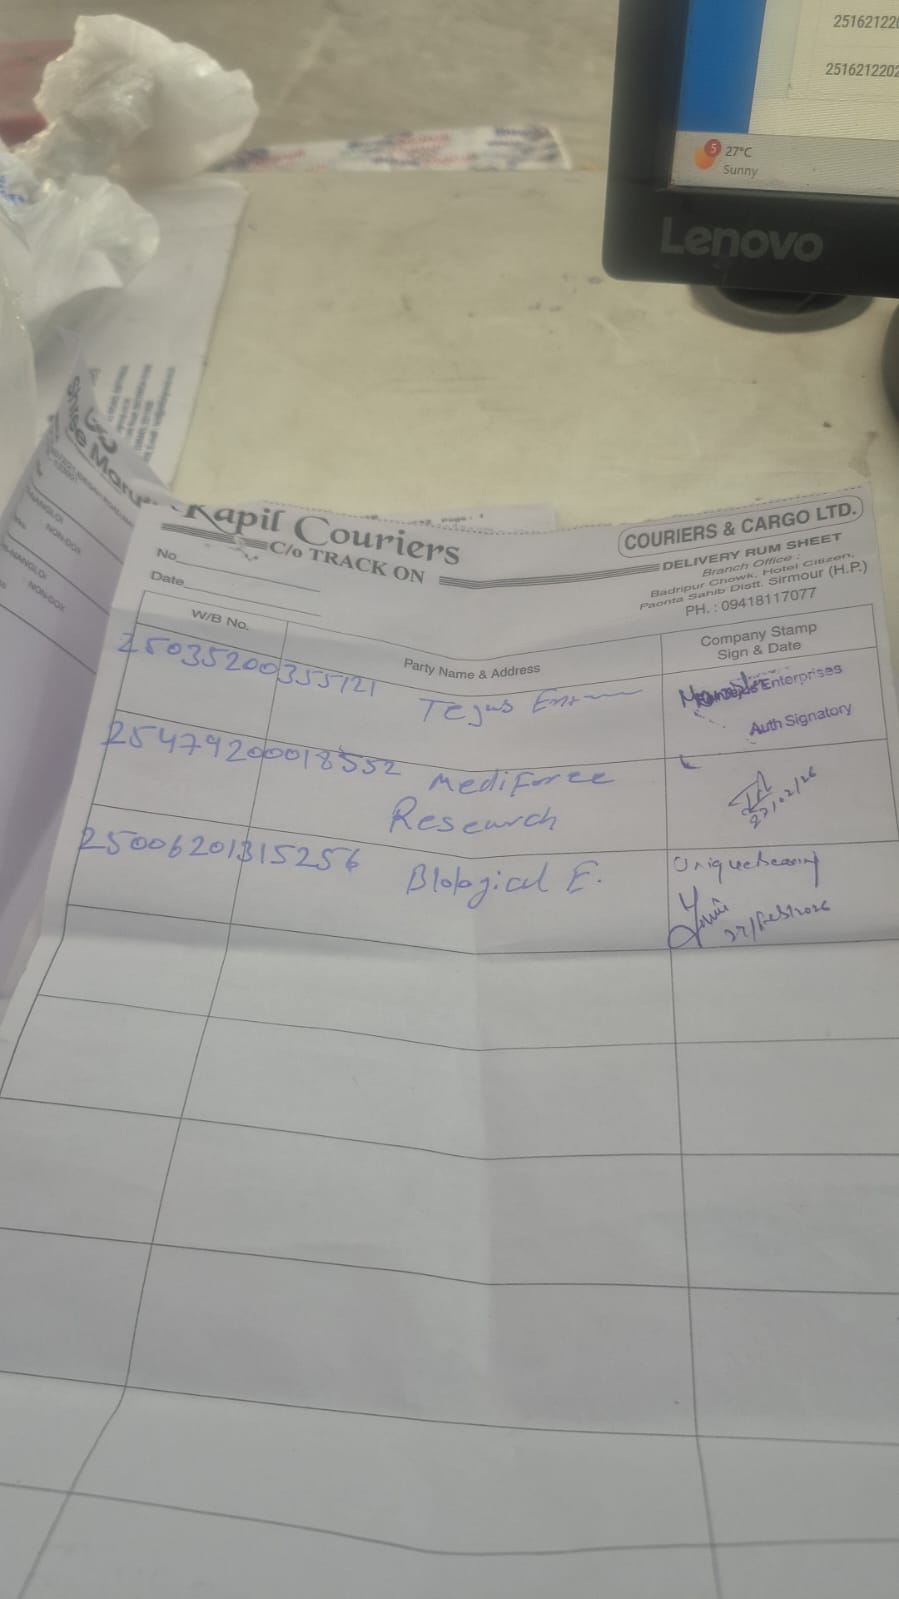 25162122
251621220
5
27°C
Sunny
Lenovo
Kapil Couriers
C/o TRACK ON
COURIERS & CARGO LTD.
DELIVERY RUM SHEET
Branch Office :
Badripur Chowk, Hotel Citizen,
Paonta Sahib Distt. Sirmour (H.P.)
PH. : 09418117077
No
Date
W/B No.
Party Name & Address
Company Stamp
Sign & Date
25035200355121
Tejus
Enterprises
Auth Signatory
25479200018552
Mediforce
Research
27/02/26
25006201315256
Blological E.
27/Feb/2026
NON-DOX
NON-DOX